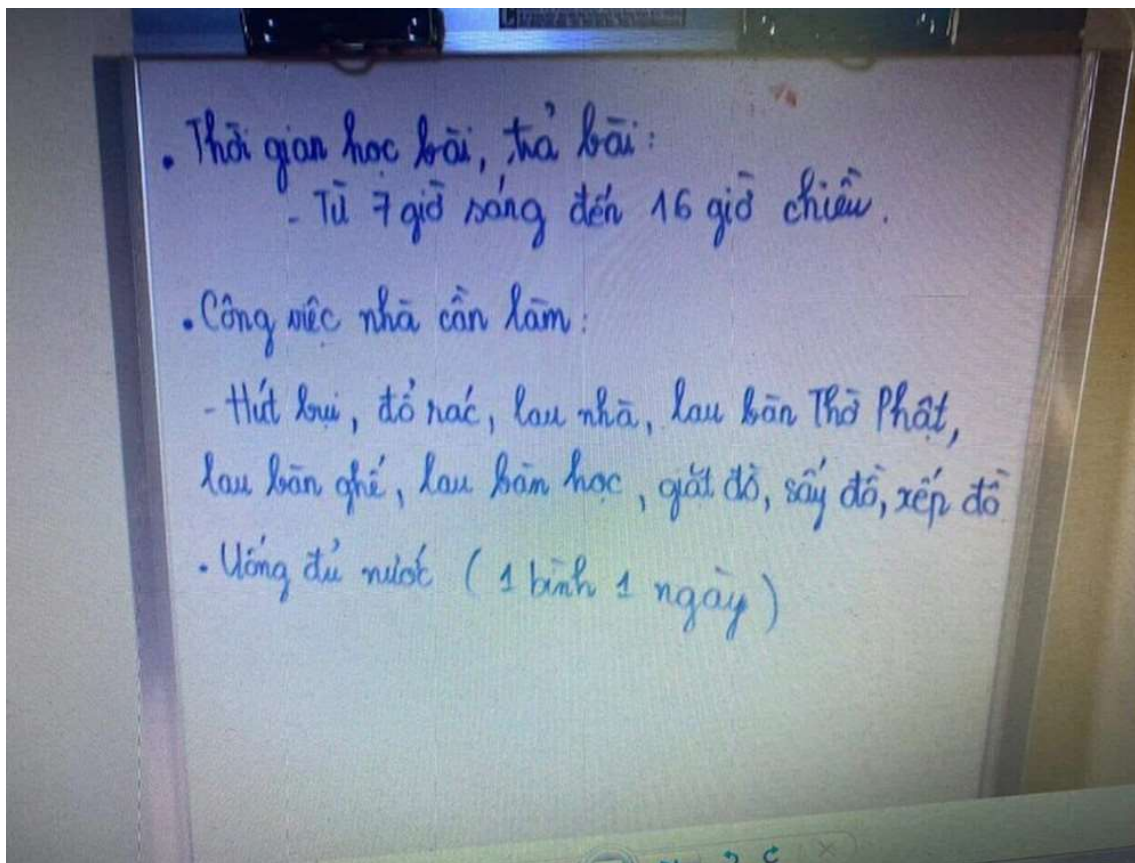 • Thời gian học bài, trả bài:
- Từ 7 giờ sáng đến 16 giờ chiều.
• Công việc nhà cần làm:
- Hút bụi, đổ rác, lau nhà, lau bàn Thờ Phật,
lau bàn ghế, lau bàn học, giặt đồ, sấy đồ, xếp đồ
• Uống đủ nước (1 bình 1 ngày)